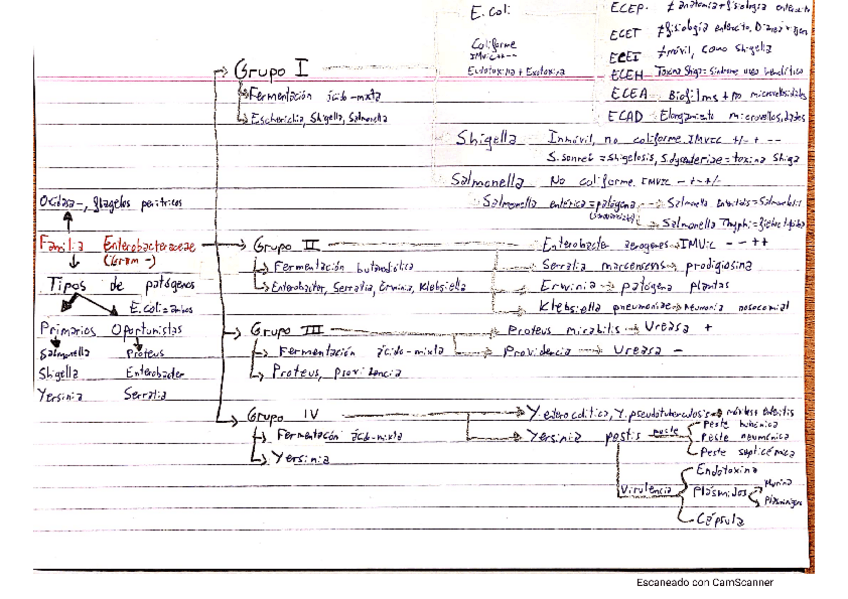 E. Coli
Coliforme
IMViC ++--
Endotoxina + Exotoxina
ECEP. ≠ anatomía + fisiología enterocito
ECET ≠ fisiología enterocito. Diarrea
ECEI ≠ móvil, como Shigella
ECEH Toxina Shiga: Síndrome
ECEA Biofilms + no microvellosidades
ECAD Elongamiento microvellosidades
Grupo I
Fermentación ácido-mixta
Escherichia, Shigella, Salmonella
Shigella Inmóvil, no coliforme. IMViC +/- + --
S. sonnei = Shigelosis, S. dysenteriae = toxina Shiga
Salmonella No coliforme. IMViC - + - +/-
Salmonella entérica = patógena Salmonella
Salmonella Typhi =
Oxidasa -, flagelos perítricos
Familia Enterobacteriaceae
(Gram -)
Tipos de patógenos
E. coli =
Primarios Oportunistas
Salmonella Proteus
Shigella Enterobacter
Yersinia Serratia
Grupo II
Fermentación butanodiólica
Enterobacter, Serratia, Erwinia, Klebsiella
Enterobacter aerogenes IMViC - - + +
Serratia marcensens prodigiosina
Erwinia patógena plantas
Klebsiella pneumoniae Neumonía nosocomial
Grupo III
Fermentación ácido-mixta
Proteus, providencia
Proteus mirabilis Ureasa +
Providencia Ureasa -
Grupo IV
Fermentación ácido-mixta
Yersinia
Y. enterocolitica, Y. pseudotuberculosis
Yersinia pestis peste
Peste bubónica
Peste neumónica
Peste septicémica
Virulencia
Endotoxina
Plásmidos
Murina
Cápsula
Escaneado con CamScanner